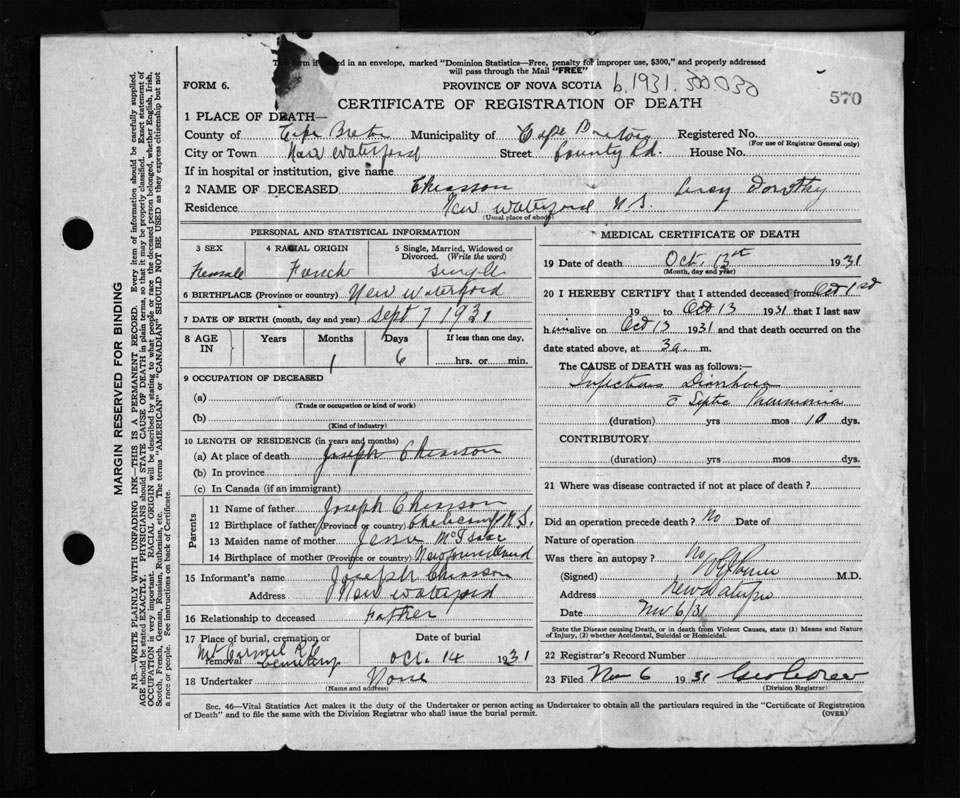 This form if mailed in an envelope, marked "Dominion Statistics—Free, penalty for improper use, $300," and properly addressed
will pass through the Mail "FREE"
FORM 6. PROVINCE OF NOVA SCOTIA b.1931.
CERTIFICATE OF REGISTRATION OF DEATH 570
1 PLACE OF DEATH—
County of Cape Breton Municipality of Cape Breton Registered No.
(For use of Registrar General only)
City or Town New Waterford Street County Rd. House No.
If in hospital or institution, give name
2 NAME OF DECEASED Chiasson Dorothy
Residence New Waterford N.S.
(Usual place of abode)
PERSONAL AND STATISTICAL INFORMATION
3 SEX 4 RACIAL ORIGIN 5 Single, Married, Widowed or Divorced. (Write the word)
Female French Single
6 BIRTHPLACE (Province or country) New Waterford
7 DATE OF BIRTH (month, day and year) Sept 7 1931
8 AGE IN Years Months Days If less than one day,
1 6 hrs. or min.
9 OCCUPATION OF DECEASED
(a)
(Trade or occupation or kind of work)
(b)
(Kind of industry)
10 LENGTH OF RESIDENCE (in years and months)
(a) At place of death Joseph Chiasson
(b) In province
(c) In Canada (if an immigrant)
Parents
11 Name of father Joseph Chiasson
12 Birthplace of father (Province or country) N.S.
13 Maiden name of mother Jessie McIsaac
14 Birthplace of mother (Province or country) Newfoundland
15 Informant's name Joseph Chiasson
Address New Waterford
16 Relationship to deceased Father
17 Place of burial, cremation or removal Date of burial
Mt Carmel Cemetery Oct. 14 1931
18 Undertaker None
(Name and address)
MEDICAL CERTIFICATE OF DEATH
19 Date of death Oct. 13th 1931
(Month, day and year)
20 I HEREBY CERTIFY that I attended deceased from Oct 1st
19 to Oct 13 1931 that I last saw
h alive on Oct 13 1931 and that death occurred on
date stated above, at 3 a. m.
The CAUSE of DEATH was as follows:—
Infectious Diarrhoea
c̄ Septic Pneumonia
(duration) yrs mos 10 dys.
CONTRIBUTORY
(duration) yrs. mos dys.
21 Where was disease contracted if not at place of death?
Did an operation precede death? No Date of
Nature of operation
Was there an autopsy? No
(Signed) M.D.
Address New Waterford
Date Nov 6/31
State the Disease causing Death, or in death from Violent Causes, state (1) Means and Nature
of Injury, (2) whether Accidental, Suicidal or Homicidal.
22 Registrar's Record Number
23 Filed Nov 6 1931
(Division Registrar)
Sec. 46—Vital Statistics Act makes it the duty of the Undertaker or person acting as Undertaker to obtain all the particulars required in the "Certificate of Registration
of Death" and to file the same with the Division Registrar who shall issue the burial permit. (OVER)
MARGIN RESERVED FOR BINDING
N.B.—WRITE PLAINLY WITH UNFADING INK—THIS IS A PERMANENT RECORD. Every item of information should be carefully supplied.
AGE should be stated EXACTLY. PHYSICIANS should STATE CAUSE OF DEATH in plain terms, so that it may be properly classified. Exact statement of
OCCUPATION is very important. RACIAL ORIGIN will be described by stating to what people or race the deceased person belonged, whether English, Irish,
Scotch, French, German, Russian, Ruthenian, etc. The terms "AMERICAN" or "CANADIAN" SHOULD NOT BE USED as they express citizenship but not
a race or people. See instructions on back of Certificate.